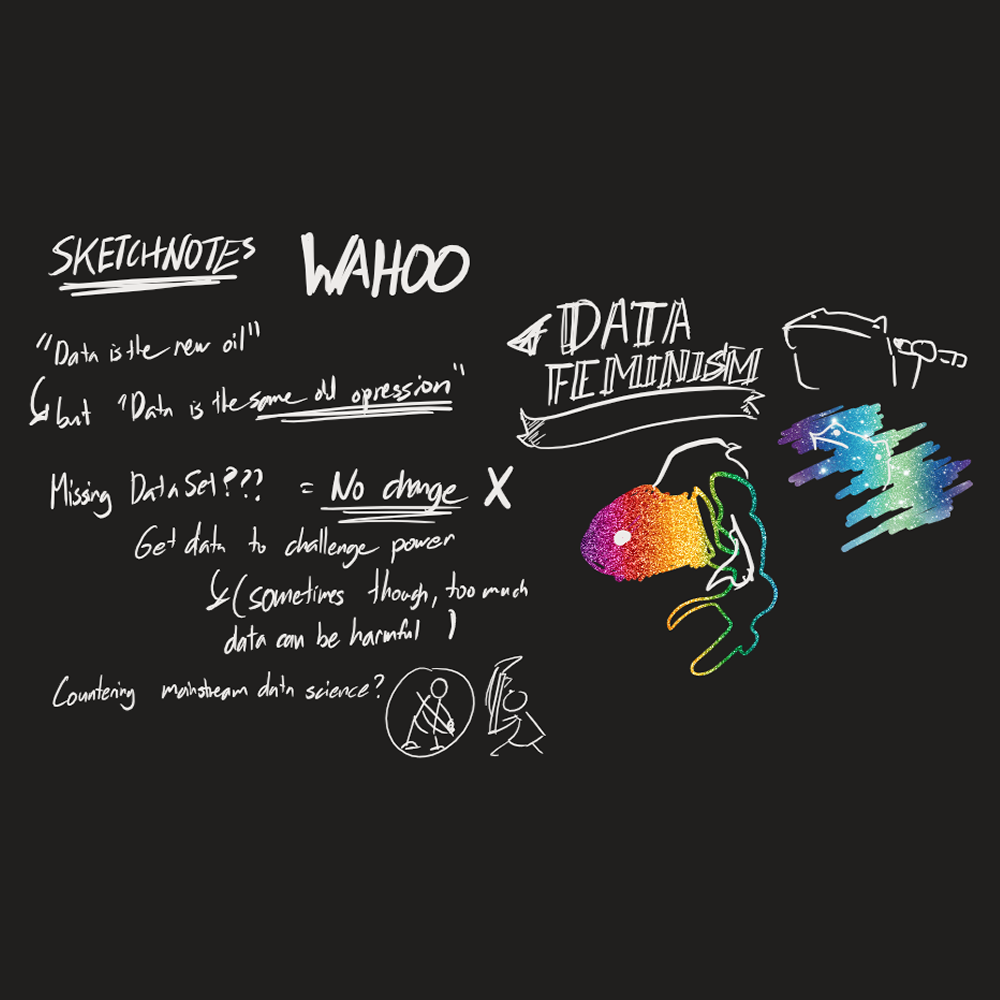 SKETCHNOTES
WAHOO
"Data is the new oil"
but "Data is the same old opression"
Missing Data Set??? = No change X
Get data to challenge power
(sometimes though, too much
data can be harmful )
Countering mainstream data science?
DATA
FEMINISM